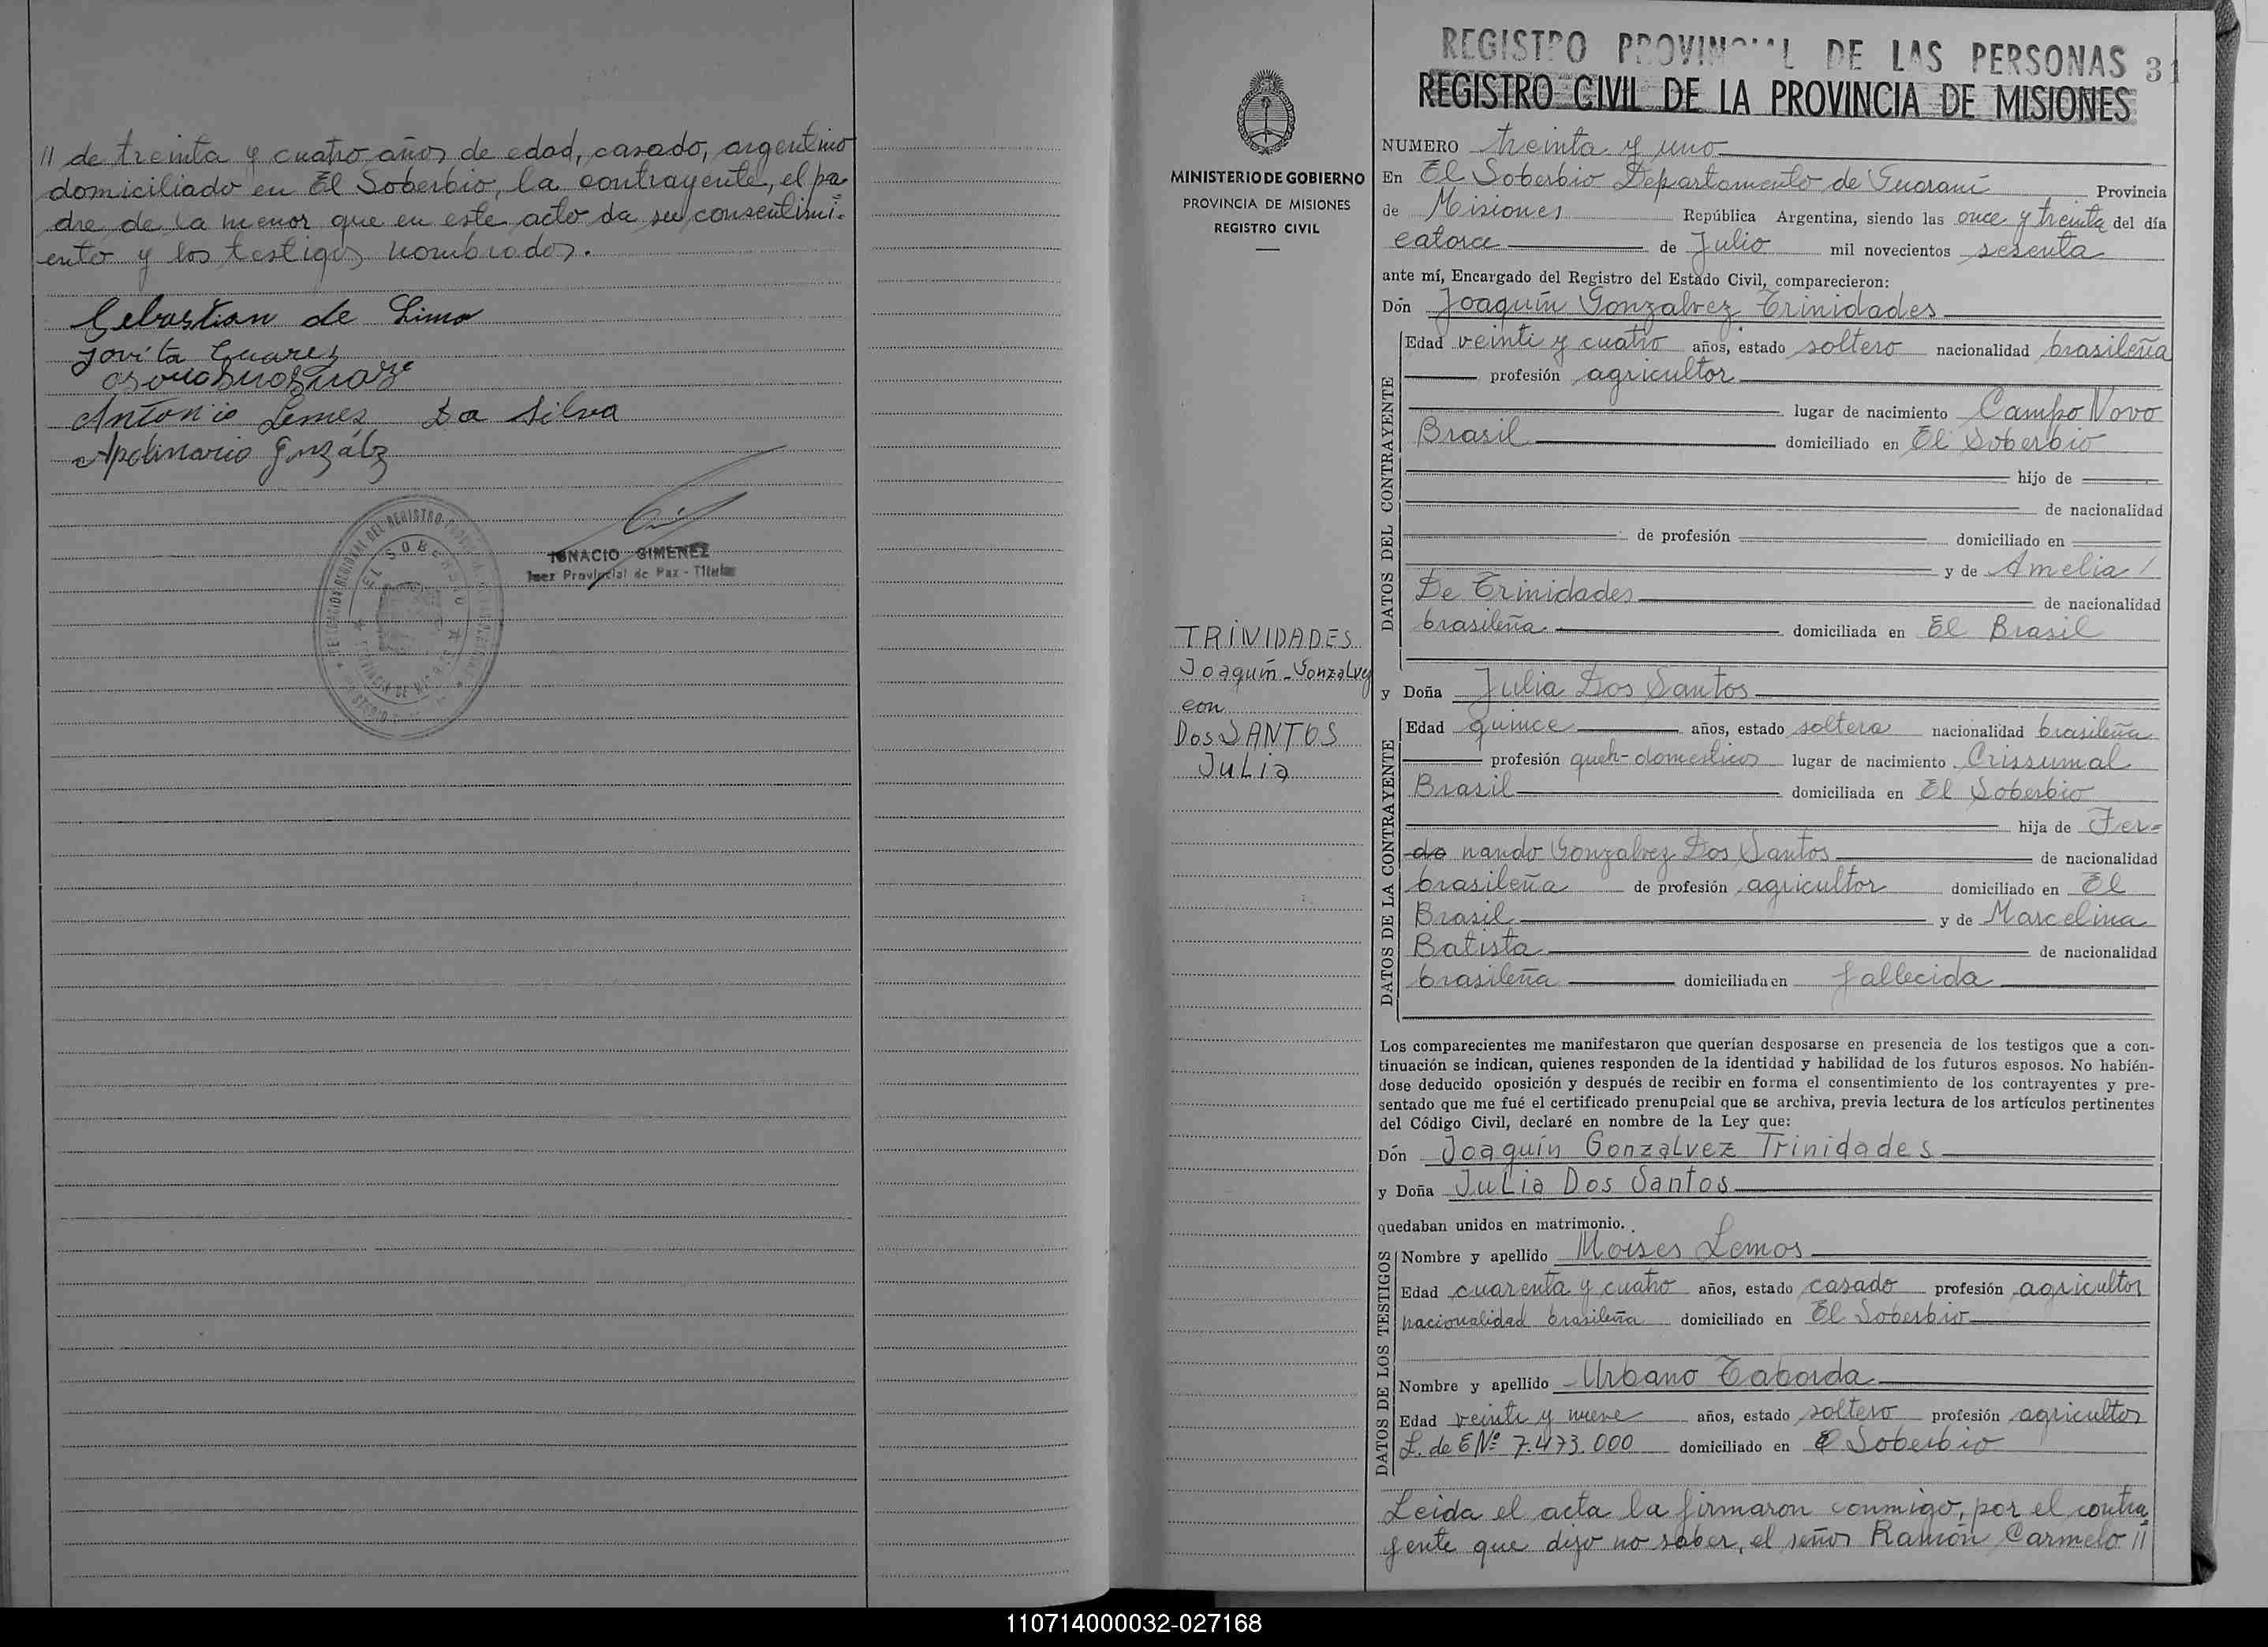 11 de treinta y cuatro años de edad, casado, argentino
domiciliado en El Soberbio, la contrayente, el pa-
dre de la menor que en este acto da su consentimi-
ento y los testigos nombrados.
Sebastian de Lima
Jovita Suarez
Antonio Lemes Da Silva
Apolinario Gonzálz
EL SOBERBIO
IGNACIO GIMENEZ
Juez Provincial de Paz - Titular
REGISTRO PROVINCIAL DE LAS PERSONAS 31
REGISTRO CIVIL DE LA PROVINCIA DE MISIONES
MINISTERIO DE GOBIERNO
PROVINCIA DE MISIONES
REGISTRO CIVIL
TRINIDADES
Joaquín-Gonzalvez
con
Dos SANTOS
JULIA
NUMERO treinta y uno
En El Soberbio Departamento de Guaraní Provincia
de Misiones República Argentina, siendo las once y treinta del día
catorce de Julio mil novecientos sesenta
ante mí, Encargado del Registro del Estado Civil, comparecieron:
Dón Joaquín Gonzalvez Trinidades
DATOS DEL CONTRAYENTE
Edad veinti y cuatro años, estado soltero nacionalidad brasileña
profesión agricultor
lugar de nacimiento Campo Novo
Brasil domiciliado en El Soberbio
hijo de
de nacionalidad
de profesión domiciliado en
y de Amelia
De Trinidades de nacionalidad
brasileña domiciliada en El Brasil
y Doña Julia Dos Santos
DATOS DE LA CONTRAYENTE
Edad quince años, estado soltera nacionalidad brasileña
profesión queh-domesticos lugar de nacimiento Crissumal
Brasil domiciliada en El Soberbio
hija de Fer-
do nando Gonzalvez Dos Santos de nacionalidad
brasileña de profesión agricultor domiciliado en El
Brasil y de Marcelina
Batista de nacionalidad
brasileña domiciliada en fallecida
Los comparecientes me manifestaron que querían desposarse en presencia de los testigos que a con-
tinuación se indican, quienes responden de la identidad y habilidad de los futuros esposos. No habién-
dose deducido oposición y después de recibir en forma el consentimiento de los contrayentes y pre-
sentado que me fué el certificado prenupcial que se archiva, previa lectura de los artículos pertinentes
del Código Civil, declaré en nombre de la Ley que:
Dón Joaquín Gonzalvez Trinidades
y Doña Julia Dos Santos
quedaban unidos en matrimonio.
DATOS DE LOS TESTIGOS
Nombre y apellido Moises Lemos
Edad cuarenta y cuatro años, estado casado profesión agricultor
nacionalidad brasileña domiciliado en El Soberbio
Nombre y apellido Urbano Taborda
Edad veinti y nueve años, estado soltero profesión agricultor
L. de E Nº 7.473.000 domiciliado en El Soberbio
Leida el acta la firmaron conmigo, por el contra-
yente que dijo no saber, el señor Ramón Carmelo 11
110714000032-027168